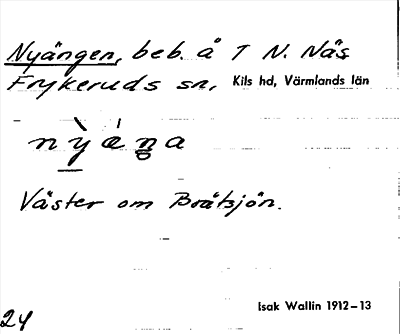 Nyängen, beb. å T N. Näs
Frykeruds sn, Kils hd, Värmlands län
Väster om Bråtsjön.
Isak Wallin 1912–13
24